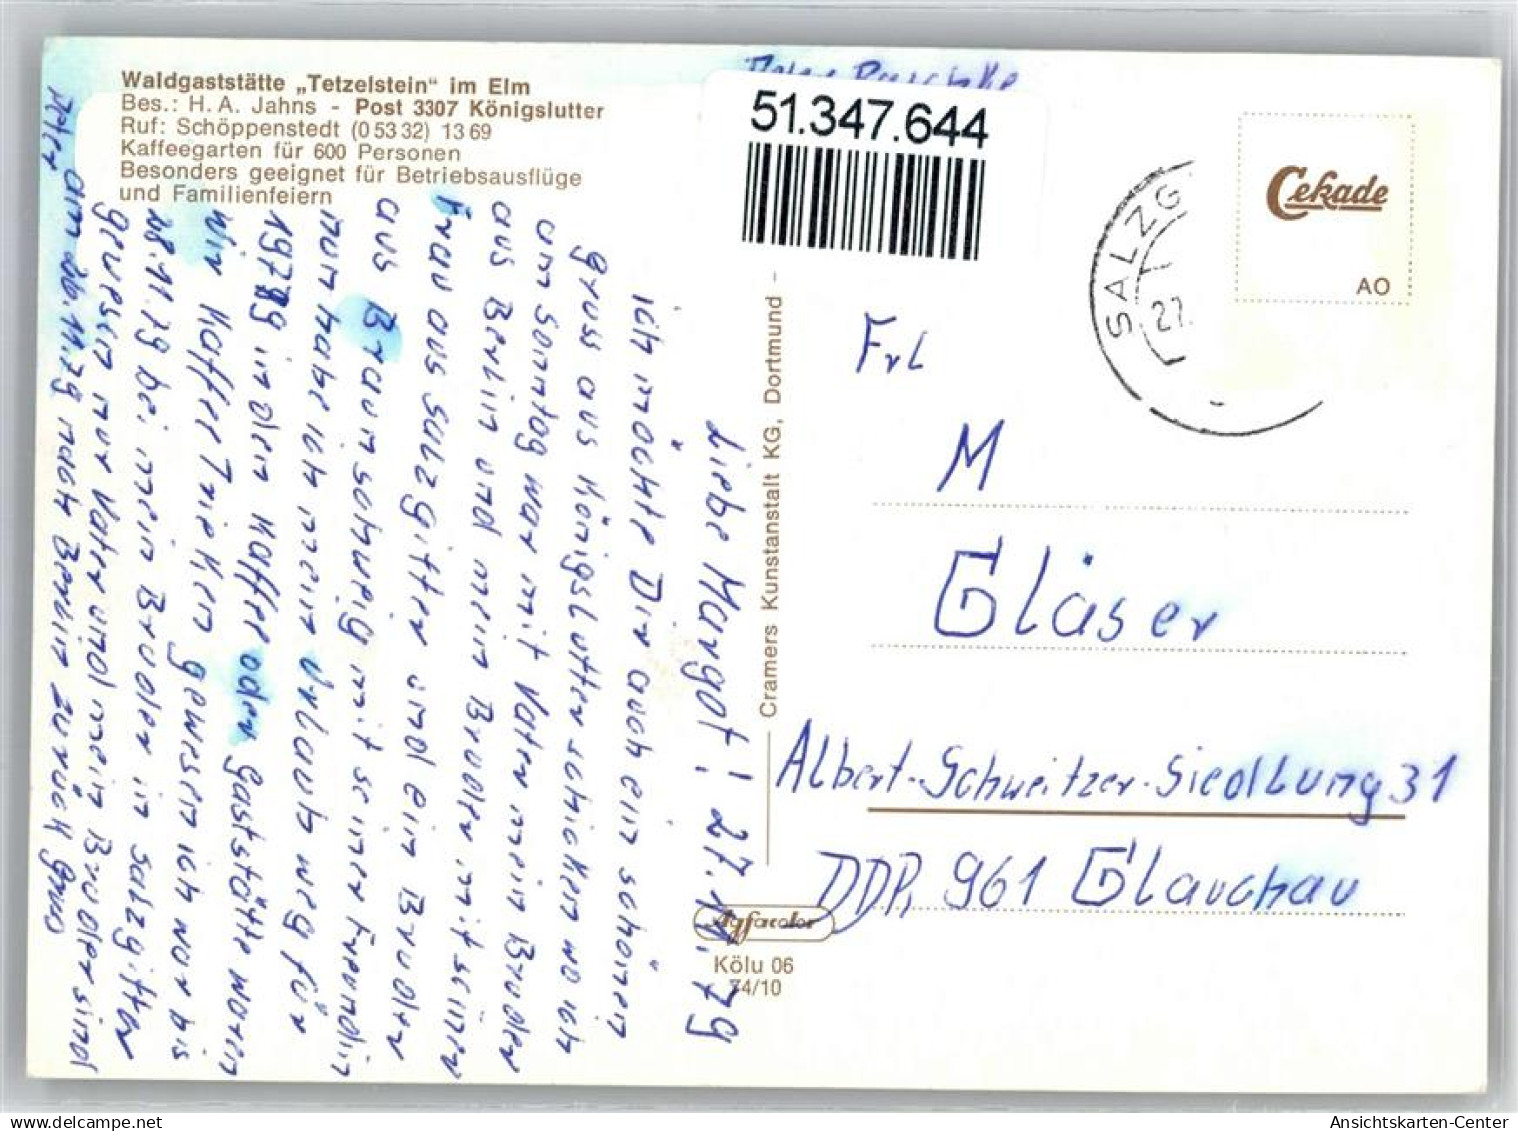 Waldgaststätte „Tetzelstein“ im Elm
Bes.: H. A. Jahns - Post 3307 Königslutter
Ruf: Schöppenstedt (0 53 32) 13 69
Kaffeegarten für 600 Personen
Besonders geeignet für Betriebsausflüge
und Familienfeiern
Liebe Margot! 27.11.79
ich möchte Dir auch ein schönen
gruss aus Königslutter schicken wo ich
am Sonntag war mit Vater mein Bruder
aus Berlin und mein Bruder mit seiner
Frau aus Salzgitter und ein Bruder
aus Braunschweig mit seiner Freundin
nun habe ich mein Urlaub weg für
1979 in den Kaffee oder Gaststätte waren
wir Kaffee Trinken gewesen ich war bis
28.11.79 bei mein Bruder in Salzgitter
gewesen nur Vater und mein Bruder sind
am 26.11.79 nach Berlin zurück gruss
Peter
Cramers Kunstanstalt KG, Dortmund
Agfacolor
Kölu 06
74/10
51.347.644
SALZG
27.
Cekade
AO
Frl
M
Gläser
Albert-Schweitzer-Siedlung 31
DDR, 961 Glauchau
Ansichtskarten-Center